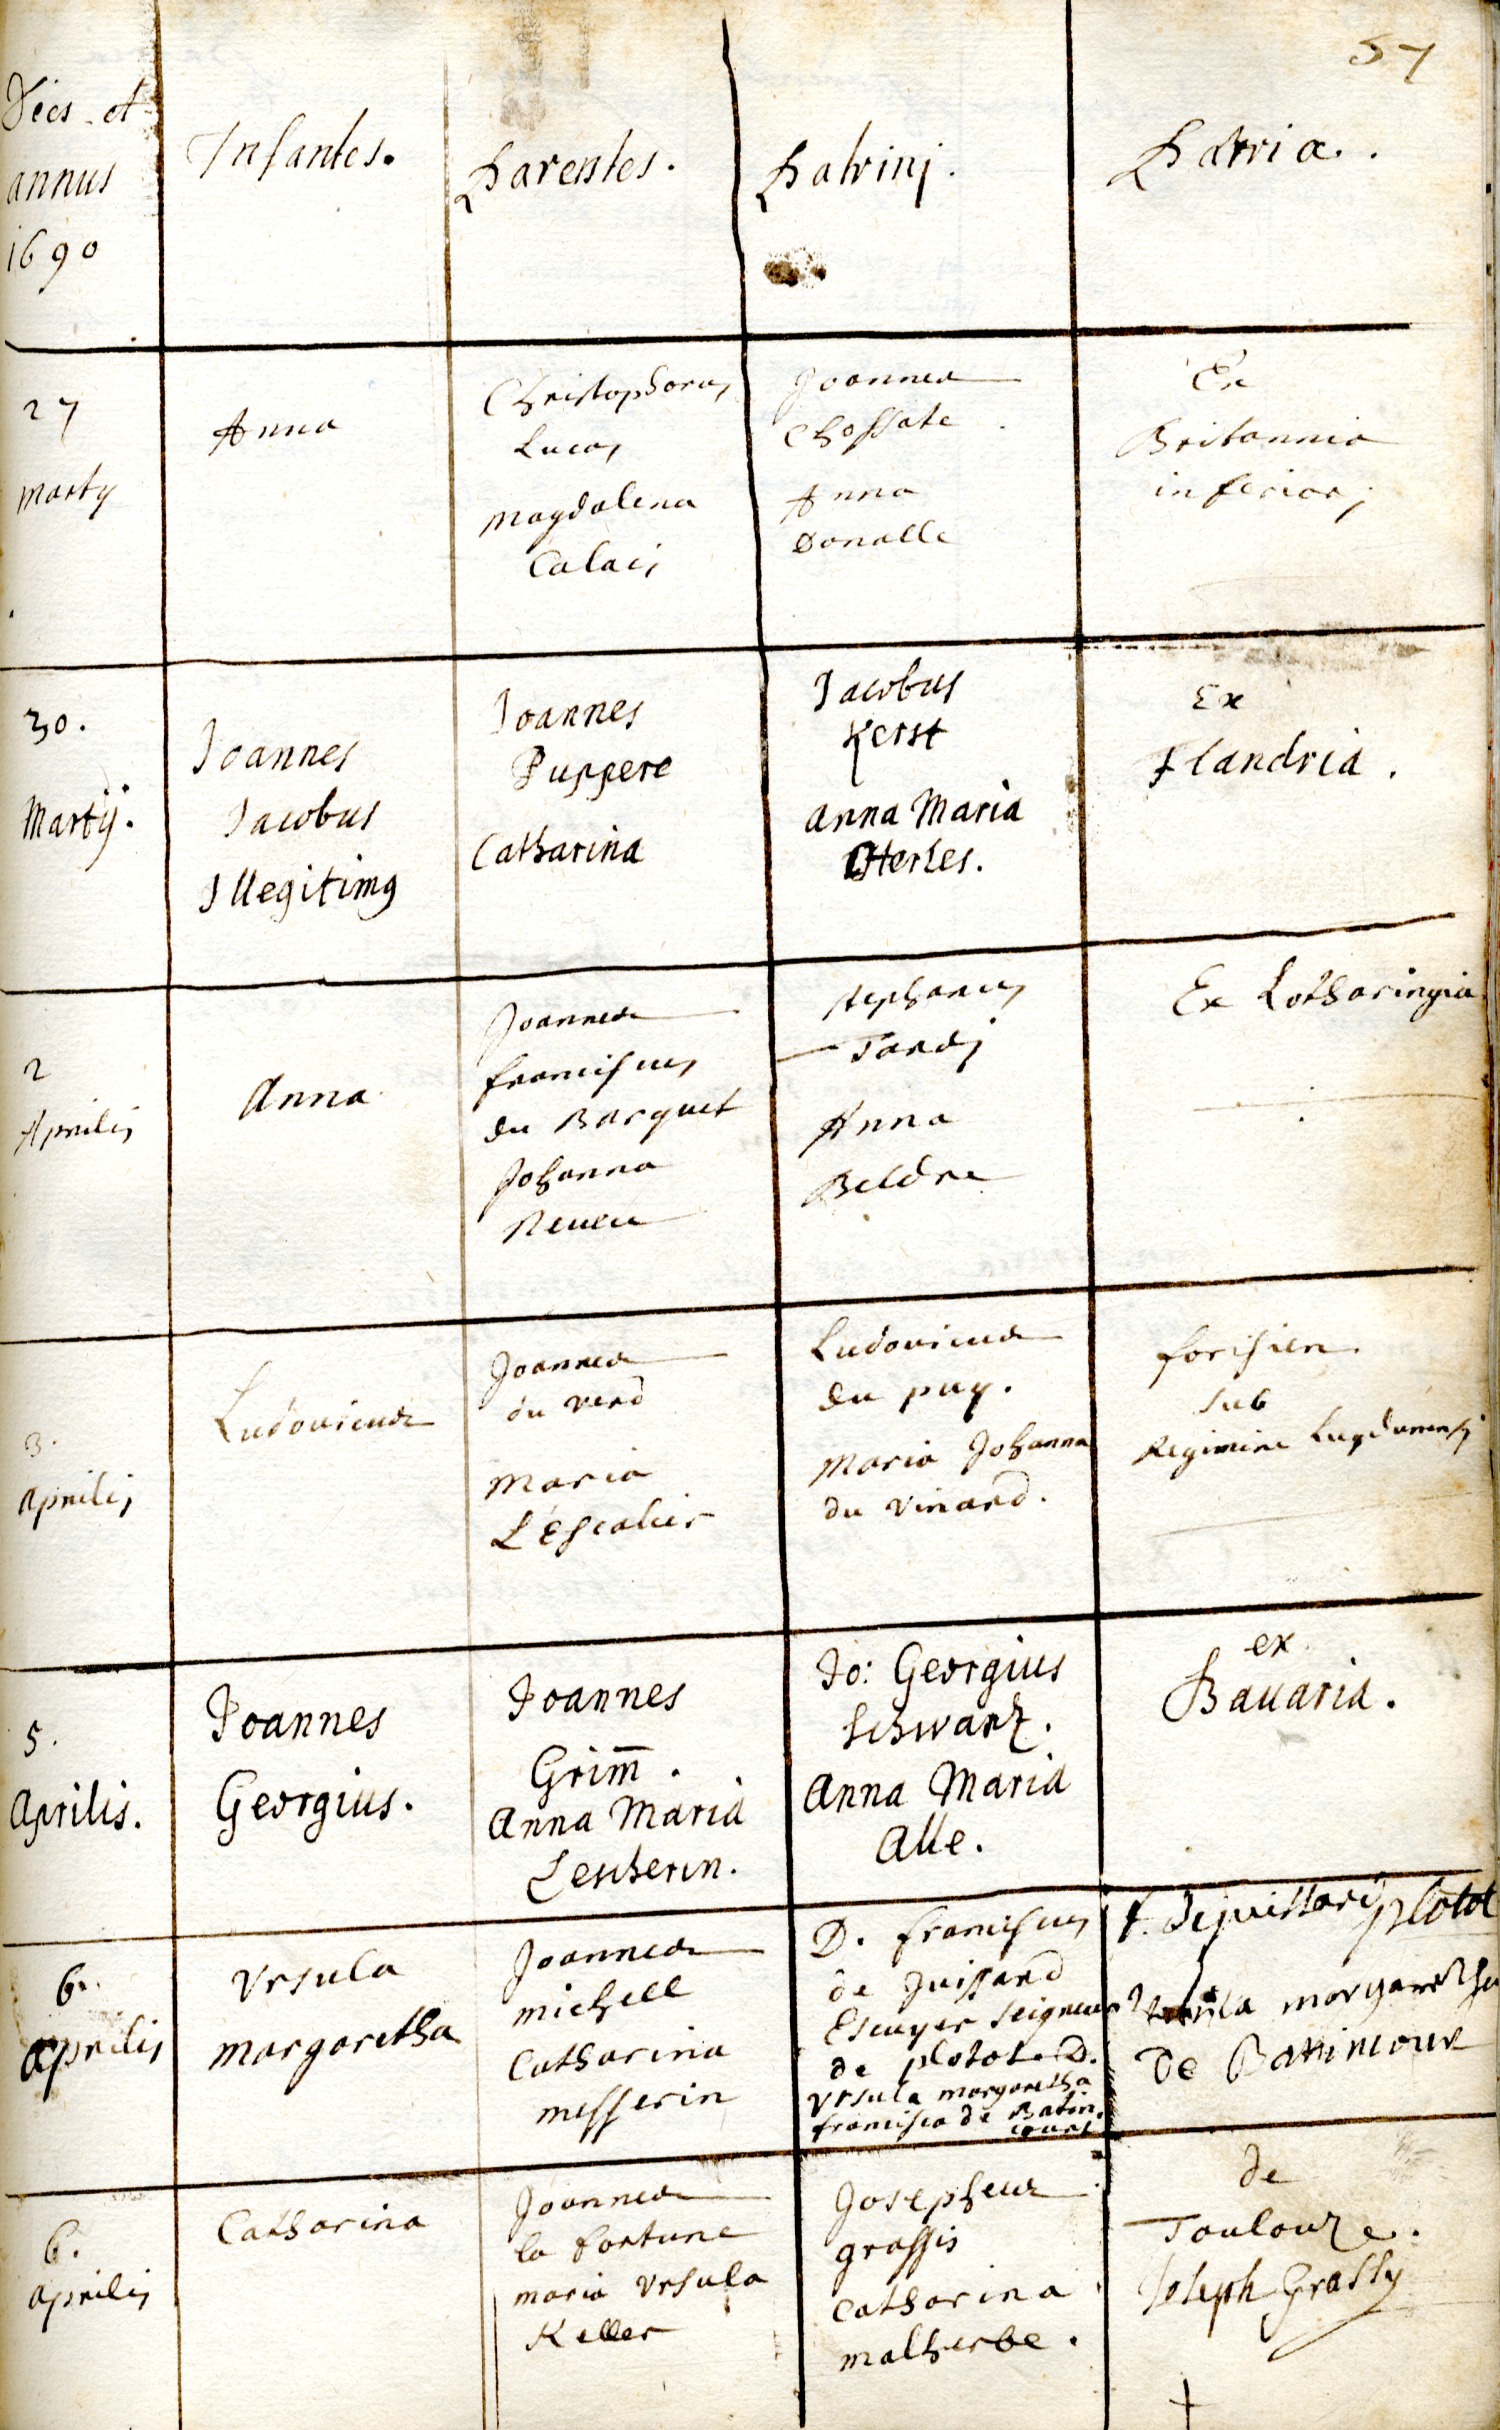 57
Dies et
annus
1690
Infantes.
Parentes.
Patrinj.
Patria.
27
Marty
Anna
Christophorus
Lucas
Magdalena
Calais
Joannes
Chossate
Anna
Donalle
Ex
Britannia
inferiorj
30.
Martÿ.
Joannes
Jacobus
Illegitimg
Joannes
Puppere
Catharina
Jacobus
Kerst
Anna Maria
Ex
Flandria.
2
Aprilis
Anna
Joannes
franciscus
du Barquet
Johanna
Neueu
stephanus
Tardj
Anna
Beldre
Ex Lotharingia
3.
Aprilis
Ludouicus
Joannes
du verd
Maria
L'Escalier
Ludouicus
du puy.
Maria Johanna
du vinard.
forisien.
sub
Regimine Lugdunensj
5.
Aprilis.
Joannes
Georgius.
Joannes
Grim̄.
Anna Maria
Lescherin.
Jo: Georgius
Schwarz.
Anna Maria
Alle.
ex
Bauaria.
6.
Aprilis
Vrsula
margaretha
Joannes
michell
Catharina
messerin
D. franciscus
de Juissard
Escuyer seigneur
de plotot D.
Vrsula margaretha
francisca de Batin
court
plotot
margaretha
De
6.
Aprilis
Catharina
Joannes
la fortune
maria Vrsula
Keller
Josephus
grassis
Catharina
malherbe.
de
Toulouze.
Joseph Grassy